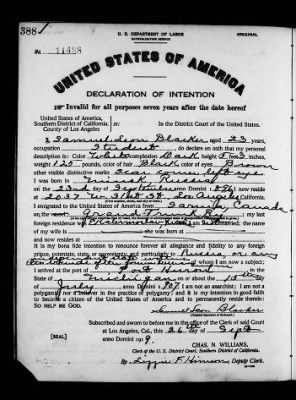 388
U. S. DEPARTMENT OF LABOR
NATURALIZATION SERVICE
ORIGINAL
No. 11488
UNITED STATES OF AMERICA
DECLARATION OF INTENTION
Invalid for all purposes seven years after the date hereof
United States of America,
Southern District of California,
County of Los Angeles
In the District Court of the United States.
I, Samuel Leon Blacker, aged 23 years,
occupation Student, do declare on oath that my personal
description is: Color White, complexion Dark, height 5 feet inches,
weight 125 pounds, color of hair Black, color of eyes Brown
other visible distinctive marks Scar left eye
I was born in Minsk, Russia
on the 22nd day of September, anno Domini 1896; I now reside
at 2037 W. 31st St. Los Angeles, California.
I emigrated to the United States of America from Sarnia, Canada
on the vessel Grand Trunk Ry.; my last
foreign residence was; the name
of my wife is; she was born at
and now resides at
It is my bona fide intention to renounce forever all allegiance and fidelity to any foreign
prince, potentate, state, or sovereignty, and particularly to Russia or any
of whom I am now a subject;
I arrived at the port of Port Huron, in the
State of Michigan, on or about the day
of July, anno Domini 1907; I am not an anarchist; I am not a
polygamist nor a believer in the practice of polygamy; and it is my intention in good faith
to become a citizen of the United States of America and to permanently reside therein:
SO HELP ME GOD.
Samuel Leon Blacker
Subscribed and sworn to before me in the office of the Clerk of said Court
at Los Angeles, Cal., this 26th day of Sept
anno Domini 1919.
[SEAL]
CHAS. N. WILLIAMS,
Clerk of the U. S. District Court, Southern District of California.
By, Deputy Clerk.